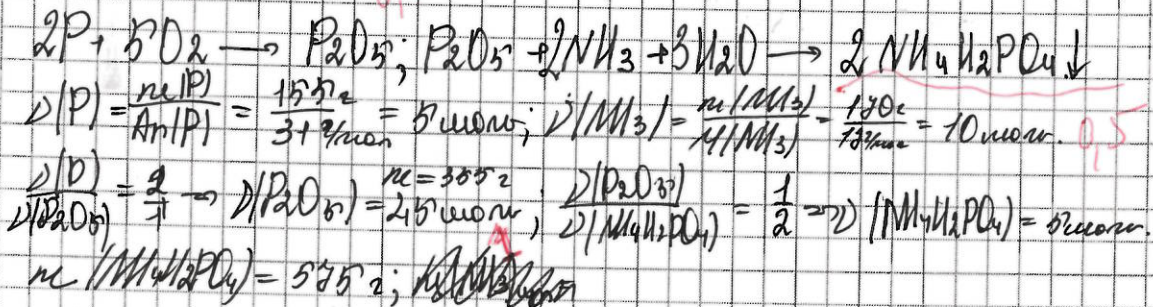 2P + 5O2 → P2O5; P2O5 + 2NH3 + 3H2O → 2NH4H2PO4↓
ν(P) = m(P)/Ar(P) = 155г/31г/моль = 5 моль; ν(NH3) = m(NH3)/M(NH3) = 170г/17г/моль = 10 моль. 0,5
ν(P)/ν(P2O5) = 2/1 → ν(P2O5) = 2,5 моль, m = 355г; ν(P2O5)/ν(NH4H2PO4) = 1/2 => ν(NH4H2PO4) = 5 моль.
m(NH4H2PO4) = 575г;